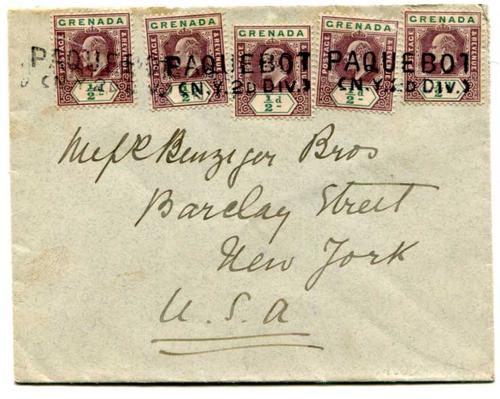 GRENADA GRENADA GRENADA GRENADA GRENADA
POSTAGE & REVENUE
½d ½d ½d ½d ½d
PAQUEBOT PAQUEBOT PAQUEBOT
(N.Y. 2D DIV.) (N.Y. 2D DIV.)
Messrs Benziger Bros
Barclay Street
New York
U.S.A